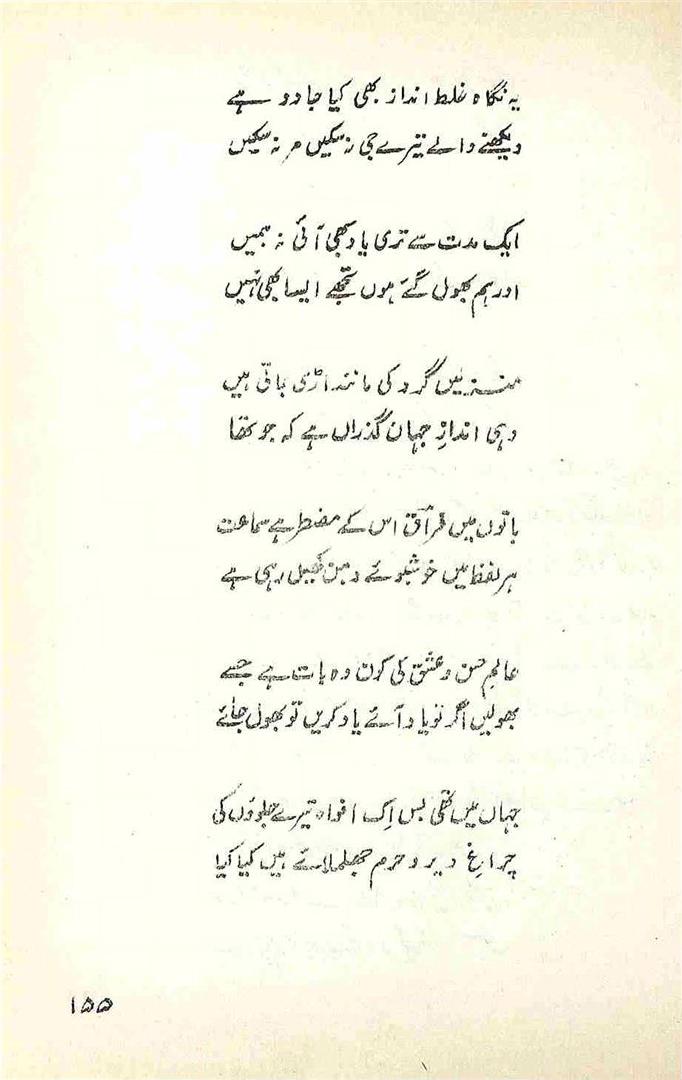 یہ نگاہ غلط انداز بھی کیا جادو ہے
دیکھنے والے تیرے جی نہ سکیں مر نہ سکیں
ایک مدت سے تری یاد بھی آئی نہ ہمیں
اور ہم بھول گئے ہوں تجھے ایسا بھی نہیں
منزلیں گرد کی مانند اڑی جاتی ہیں
وہی اندازِ جہان گذراں ہے کہ جو تھا
باتوں میں فراقؔ اس کے مضطر ہے سماعت
ہر لفظ میں خوشبوئے دہن کھیل رہی ہے
عالمِ حسن و عشق کی کون وہ بات ہے جسے
بھولیں اگر تو یاد آئے یاد کریں تو بھول جائے
جہاں میں تھی بس اِک افواہ تیرے جلوؤں کی
چراغِ دیر و حرم جھلملائے ہیں کیا کیا
۱۵۵